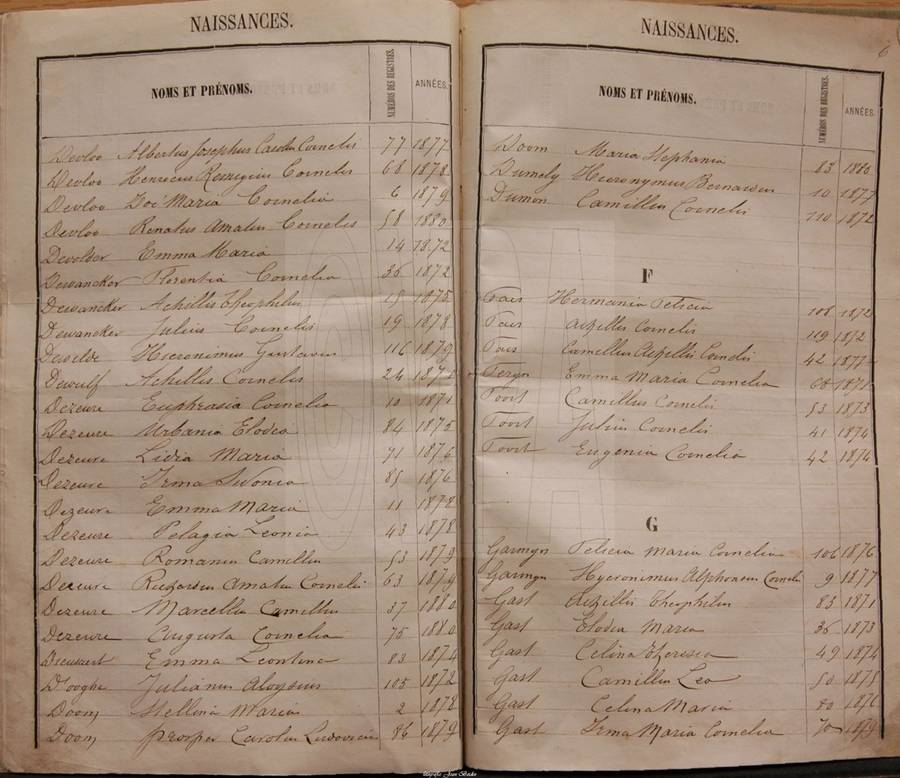 NAISSANCES.
NOMS ET PRÉNOMS. NUMÉROS DES REGISTRES. ANNÉES.
Devloo Albertus Josephus Carolus Cornelis 77 1877
Devloo Henricus Remigius Cornelis 68 1878
Devloo Zoé Maria Cornelia 6 1879
Devloo Renatus Amatus Cornelis 58 1880
Devolder Emma Maria 14 1872
Dewancker Florentia Cornelia 36 1872
Dewancker Achillis Theophilus 15 1875
Dewancker Julius Cornelis 19 1878
Dewilde Hieronimus Gustavus 116 1879
Dewulf Achillis Cornelis 24
Dezeure Euphrasia Cornelia 10 1871
Dezeure Urbania Elodia 84 1875
Dezeure Lidia Maria 71 1876
Dezeure Irma Sidonia 85 1876
Dezeure Emma Maria 11 1878
Dezeure Pelagia Leonia 43 1878
Dezeure Romanus Camillus 53 1879
Dezeure Richardus Amatus Cornelis 63 1879
Dezeure Marcellus Camillus 37 1880
Dezeure Augusta Cornelia 75 1880
Emma Leontina 83 1874
D'hooghe Julianus Aloysius 105 1872
Doom Stellina Maria 2 1878
Doom Prosper Carolus Ludovicus 86 1879
NAISSANCES.
6
NOMS ET PRÉNOMS. NUMÉROS DES REGISTRES. ANNÉES.
Doom Maria Stephania 83 1880
Dumely Hieronymus Bernardus 10 1877
Dumon Camillus Cornelis 110 1872
F
Fais Hermania Felicia 108 1872
Fais Achillis Cornelis 119 1872
Fais Camillus Achillis Cornelis 42 1877
Feryn Emma Maria Cornelia 68 1871
Foort Camillus Cornelis 53 1873
Foort Julius Cornelis 41 1874
Foort Eugenia Cornelia 42 1874
G
Garmyn Felicia Maria Cornelia 106 1876
Garmyn Hyeronimus Alphonsus Cornelis 9 1877
Gast Achillis Theophilus 83 1871
Gast Elodia Maria 36 1873
Gast Celina Theresia 49 1874
Gast Camillus Leo 50 1875
Gast Celina Maria 80 1876
Gast Irma Maria Cornelia 70 1879